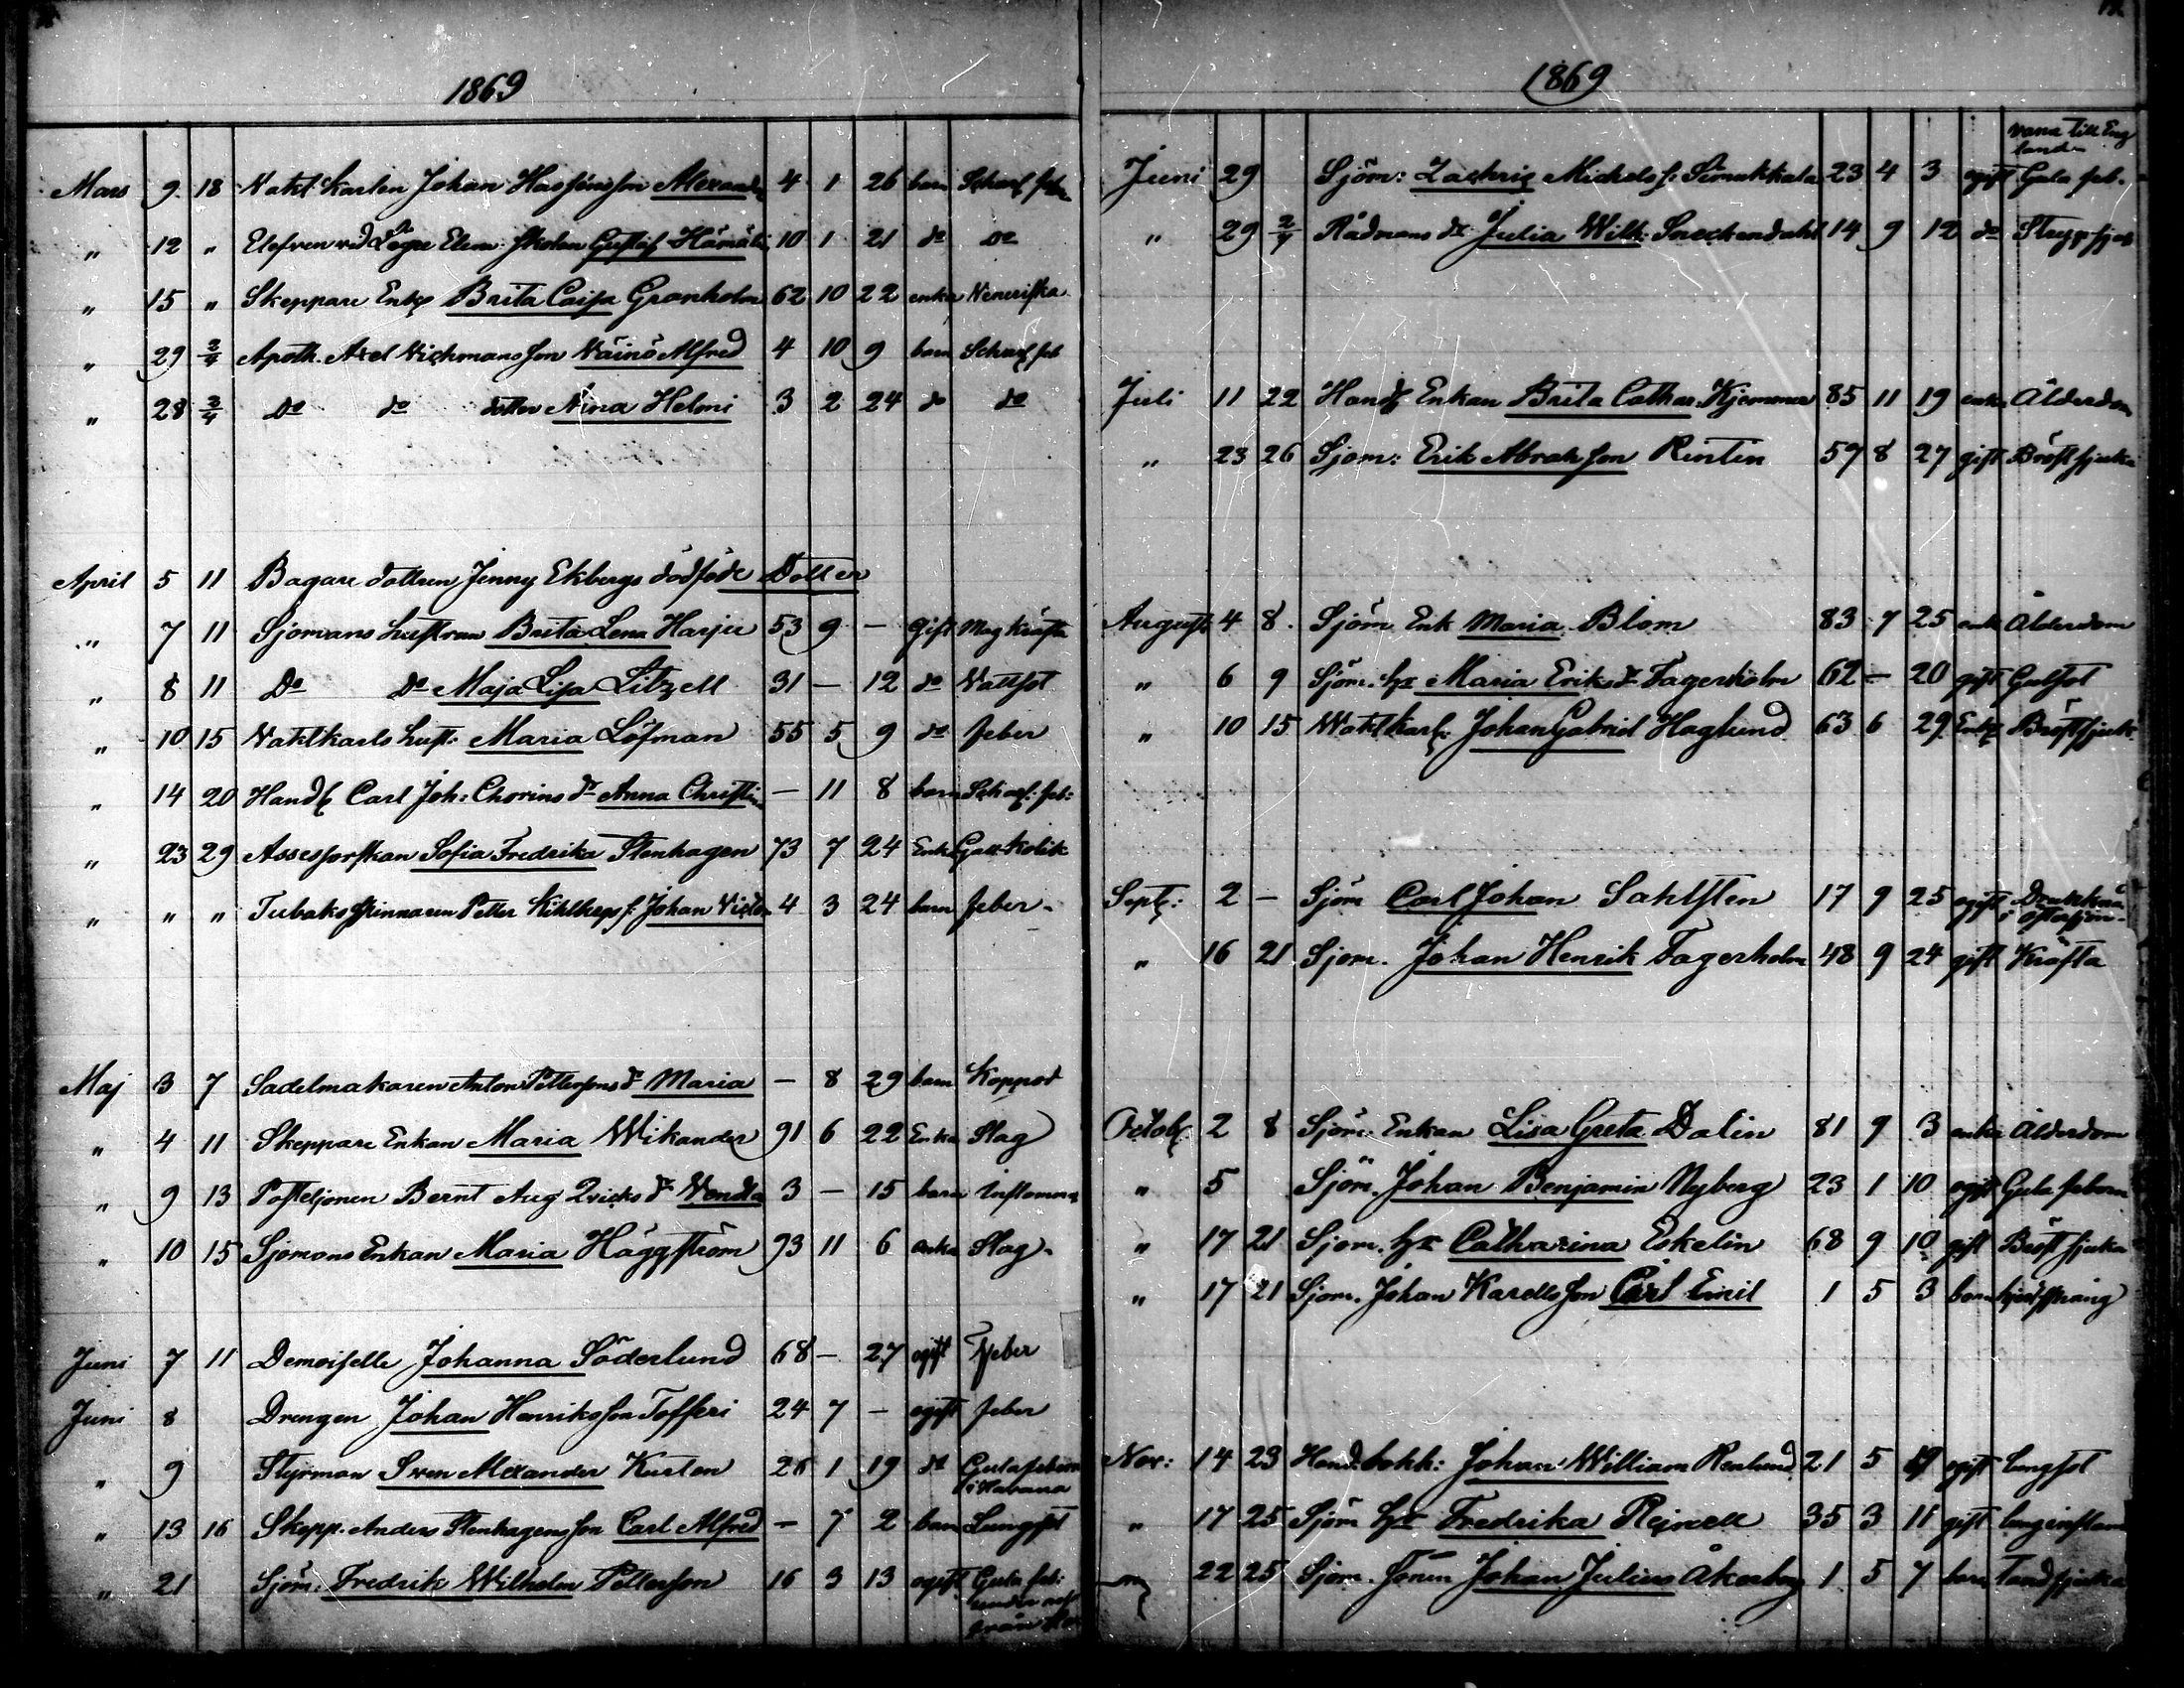 1869
Mars 9 18 Vakt Karlen Johan Hassöns son Alexand 4 1 26 barn Scharl feb
" 12 " Elefven vid Lägre Elem: skolan Gustaf 10 1 21 do do
" 15 " Skeppare Enk Brita Caisa Granholm 62 10 22 enka Veneriska
" 29 2/4 Apoth. Axel Vichmans son Väinö Alfred 4 10 9 barn Scharl feb
" 28 2/4 do do dotter Aina Helmi 3 2 24 do do
April 5 11 Bagare dottren Jenny Ekbergs dödföde Dotter
" 7 11 Sjömans hustrun Brita Lena Harju 53 9 — Gift Mag Kräfta
" 8 11 Do Do Maja Lisa Litzell 31 — 12 do Vattsot
" 10 15 Vaktkarls hust: Maria Löfman 55 5 9 do feber
" 14 20 Handl Carl Joh: Chorins dr Anna Christin — 11 8 barn Scharl: feb:
" 23 29 Assessorskan Sofia Fredrika Stenhagen 73 7 24 Enka Gall Kolik
" " " Tobaks Spinnaren Petter Kihlbergs s. Johan Victor 4 3 24 barn feber
Maj 3 7 Sadelmakaren Anton Pettersons dr Maria — 8 29 barn Koppor
" 4 11 Skeppare Enkan Maria Wikander 91 6 22 Enka Slag
" 9 13 Posteljonen Bernt Aug Qvicks dr Vendla 3 — 15 barn Inflamma
" 10 15 Sjömans Enkan Maria Häggström 93 11 6 enka Slag
Juni 7 11 Demoiselle Johanna Söderlund 68 — 27 ogift Feber
Juni 8 Drengen Johan Henriksson Tofferi 24 7 — ogift feber
" 9 Styrman Sven Alexander Kursten 26 1 19 do Gula febern
i Havana
" 13 16 Skepp. Anders Stenhagens son Carl Alfred — 7 2 barn Lungsot
" 21 Sjöm: Fredrik Wilhelm Petterson 16 3 13 ogift Gula feb:
under
från
1869
vana till Eng
land
Juni 29 Sjöm: Zachris Michels s: Simukkala 23 4 3 ogift Gula feb.
" 29 2/7 Rådmans dr Julia Wilh: Sneckendahl 14 9 12 do Strypsjuk
Juli 11 22 Handl Enkan Brita Cathar. Kjemmer 85 11 19 enka Ålderdom
" 23 26 Sjöm: Erik Abrahsson Rintin 59 8 27 gift Bröstsjuka
Augusti 4 8 Sjöm Enk Maria Blom 83 7 25 enk Ålderdom
" 6 9 Sjöm. hu Maria Eriks dr Fagerholm 62 — 20 gift Gulsot
" 10 15 Waktkarl: Johan Gabriel Haglund 63 6 29 Enkl Bröstsjuk
Sept: 2 — Sjöm Carl Johan Sahlsten 17 9 25 ogift Drunknat
i Östersjön
" 16 21 Sjöm. Johan Henrik Fagerholm 48 9 24 gift Kräfta
Octob 2 8 Sjöm. Enkan Lisa Greta Dalin 81 9 3 enka Ålderdom
" 5 Sjöm. Johan Benjamin Nyberg 23 1 10 ogift Gula febern
" 17 21 Sjöm. hu Catharina Eskelin 68 9 10 gift Bröstsjuka
" 17 21 Sjöm. Johan Karells son Carl Emil 1 5 3 barn
Nov: 14 23 Hand. bokh: Johan William Renlund 21 5 ogift Lungsot
" 17 25 Sjöm hu Fredrika Rejnell 35 3 11 gift lunginflam
" 22 25 Sjöm. Sonen Johan Julius Åkerberg 1 5 7 barn Tandsjuka